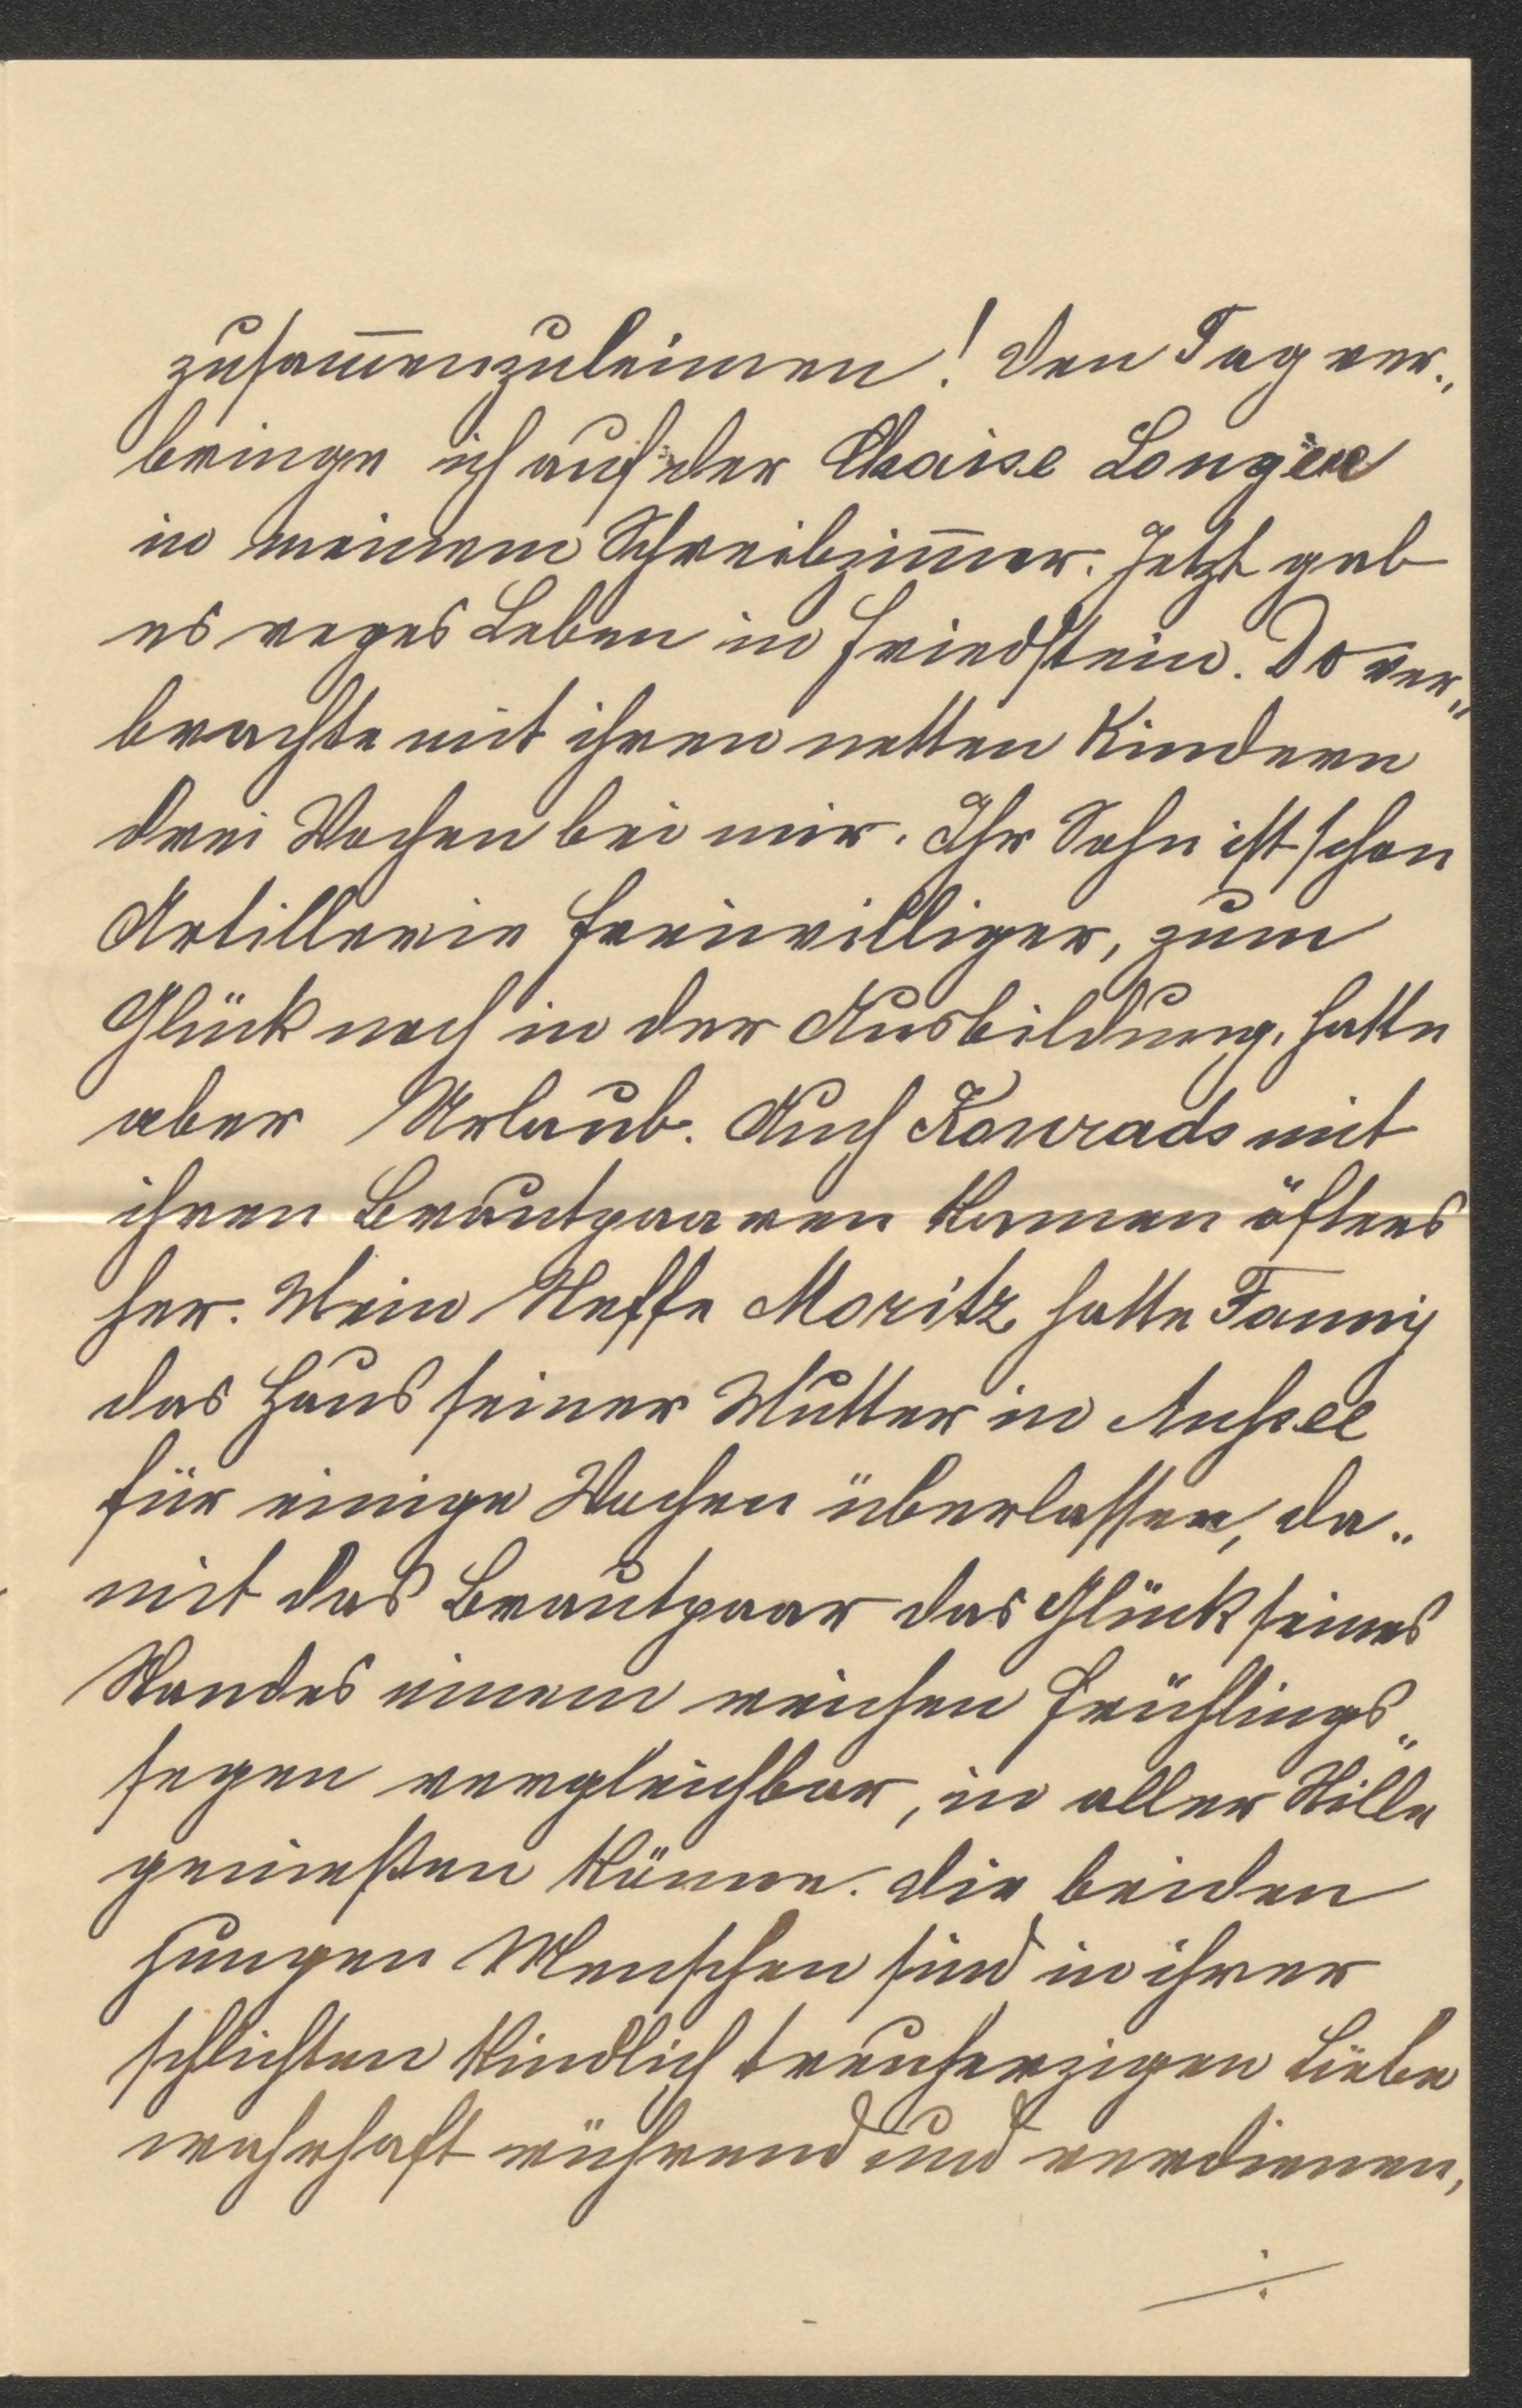 zusam̄enzuleimen! Den Tag ver„
bringe ich auf der Chaise Longue
in meinem Schreibzim̄er. Jetzt gab
es reges Leben in Friedstein. Do ver„
brachte mit ihren netten Kindern
drei Wochen bei mir. Ihr Sohn ist schon
Artillerie Freiwilliger, zum
Glück noch in der Ausbildung, hatte
aber Urlaub. Auch Konrads mit
ihren Brautpaaren kamen öfters
her. Mein Neffe Moritz hatte Fanny
das Haus seiner Mutter in Aussee
für einige Wochen überlassen, da„
mit das Brautpaar das Glück seines
Standes einem reichen Frühlings„
segen vergleichbar, in aller Stille
genießen könne. Die beiden
jungen Menschen sind in ihrer
schlichten kindlich treuherzigen Liebe
wahrhaft rührend und verdienen,